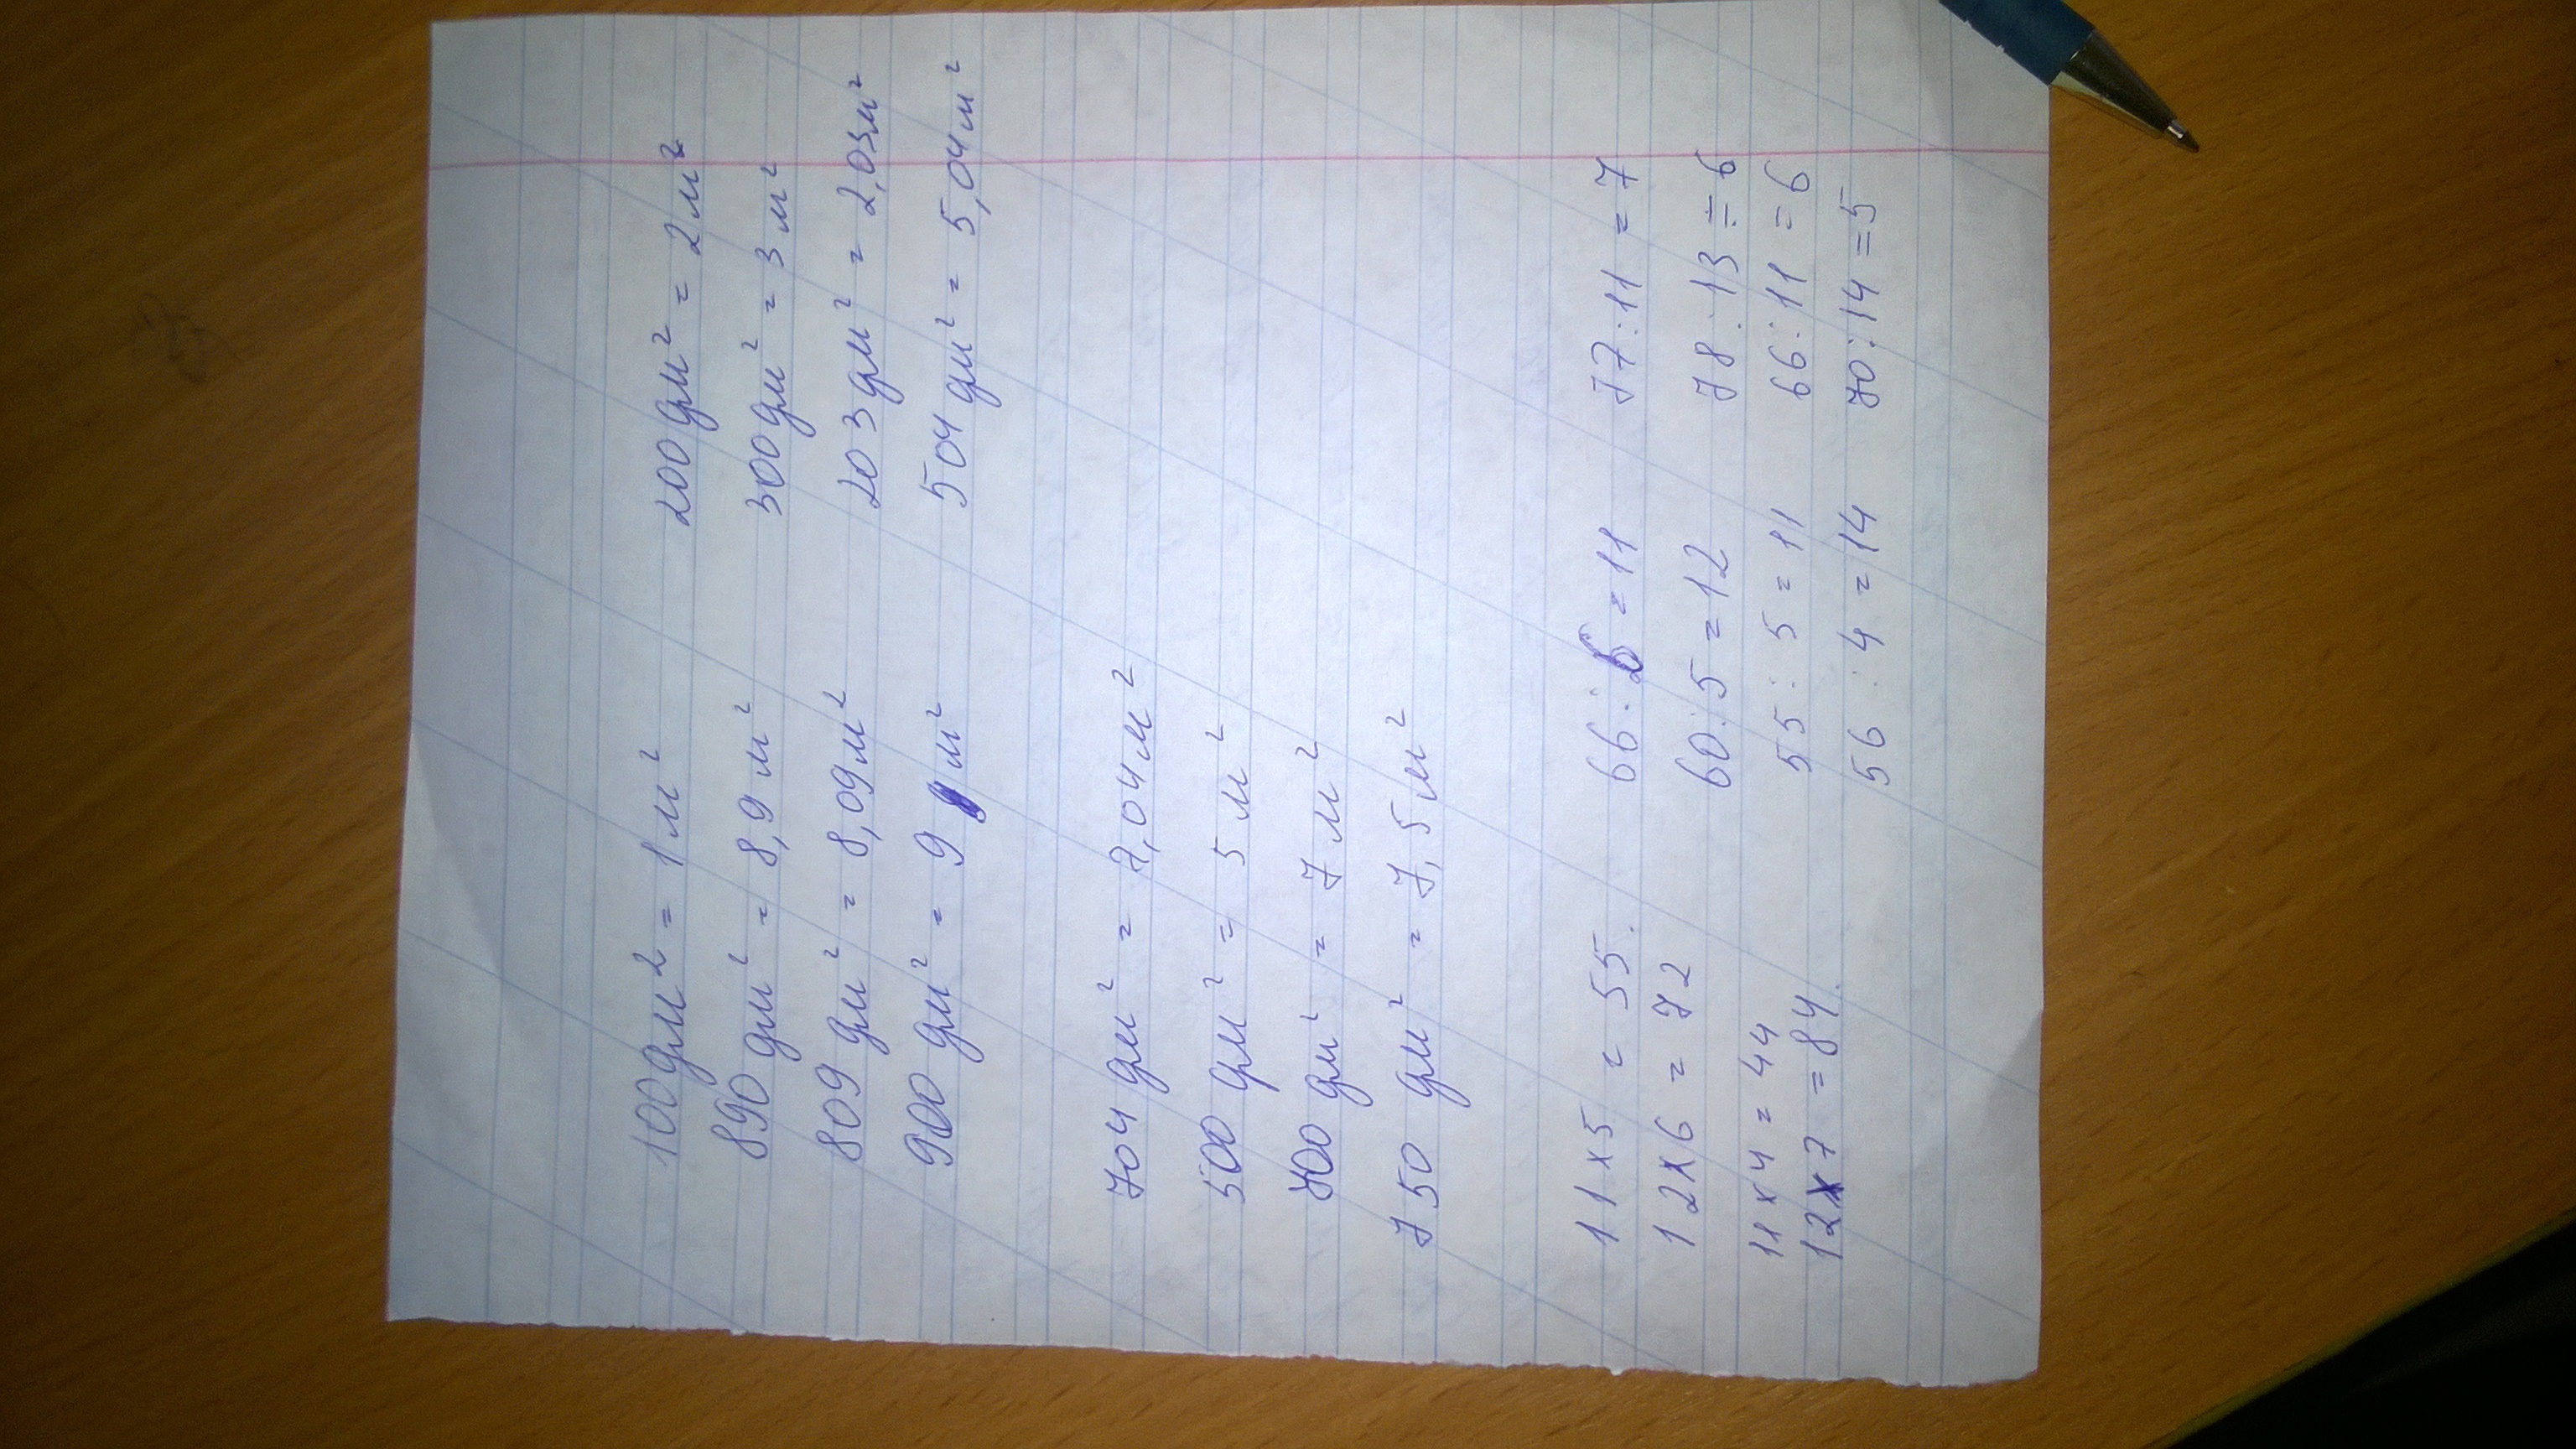 100дм2 = 1м² 200дм² = 2м²
890дм² = 8,9м² 300дм² = 3м²
809дм² = 8,09м² 203дм² = 2,03м²
900дм² = 9м² 504дм² = 5,04м²
704дм² = 7,04м²
500дм² = 5м²
700дм² = 7м²
750дм² = 7,5м²
11x5 = 55. 66:6 = 11 77:11 = 7
12x6 = 72 60:5 = 12 78:13 = 6
11x4 = 44 55:5 = 11 66:11 = 6
12x7 = 84. 56:4 = 14 70:14 = 5